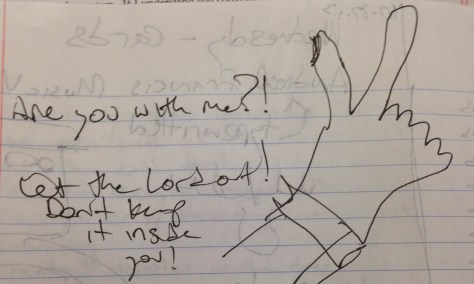 Are you with me?!
Let the Lord out!
Don't keep
it inside
you!